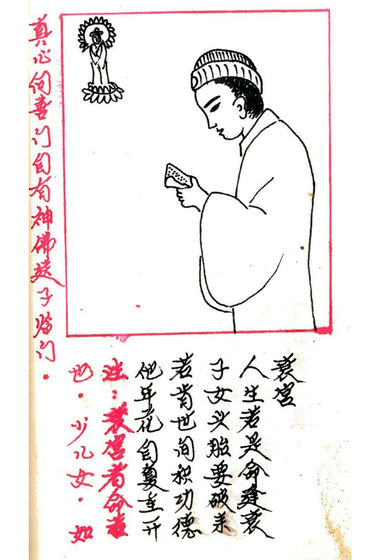 衰宫
人生若是命逢衰
子女头胎要破来
若肯世间积功德
他年花自复重开
注：衰宫者命衰
也。少儿女。如
真心向善门自有神佛送子临门。